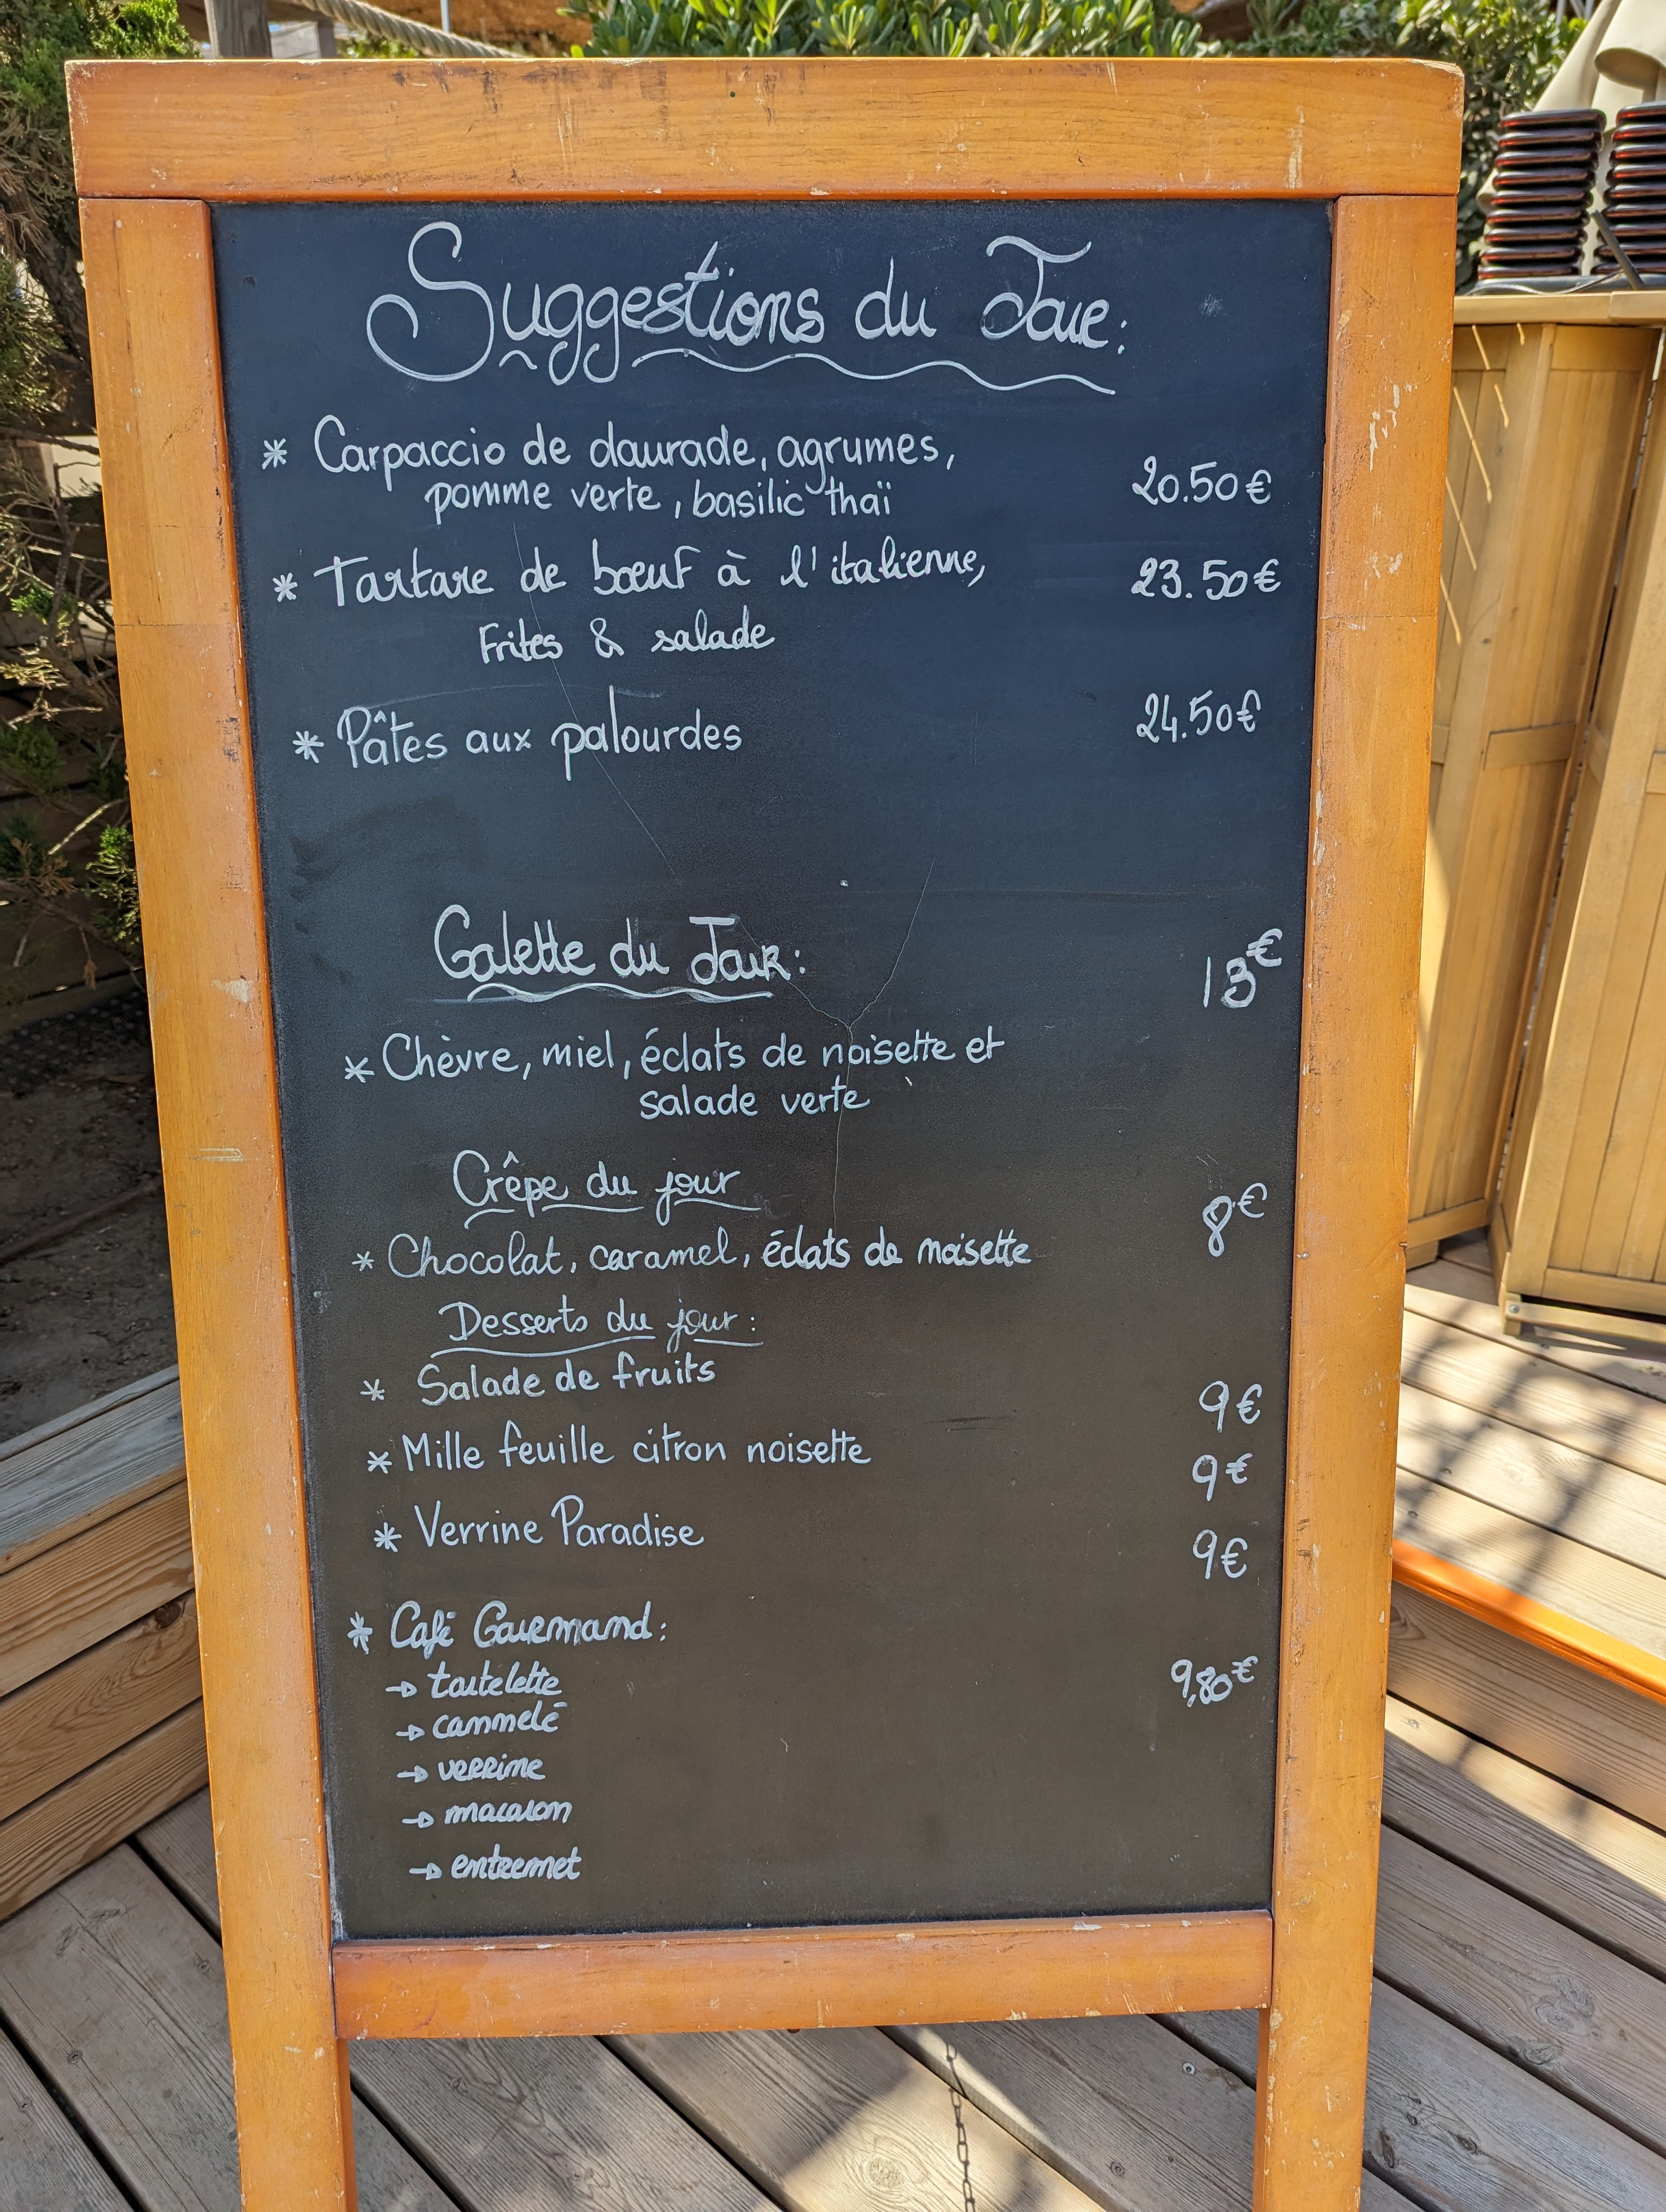 Suggestions du Jour:
* Carpaccio de daurade, agrumes,
pomme verte, basilic thaï 20.50€
* Tartare de bœuf à l'italienne, 23.50€
Frites & salade
* Pâtes aux palourdes 24.50€
Galette du Jour: 13€
* Chèvre, miel, éclats de noisette et
salade verte
Crêpe du jour 8€
* Chocolat, caramel, éclats de noisette
Desserts du jour:
* Salade de fruits 9€
* Mille feuille citron noisette 9€
* Verrine Paradise 9€
* Café Gourmand: 9,80€
→ tartelette
→ cannelé
→ verrine
→ macaron
→ entremet